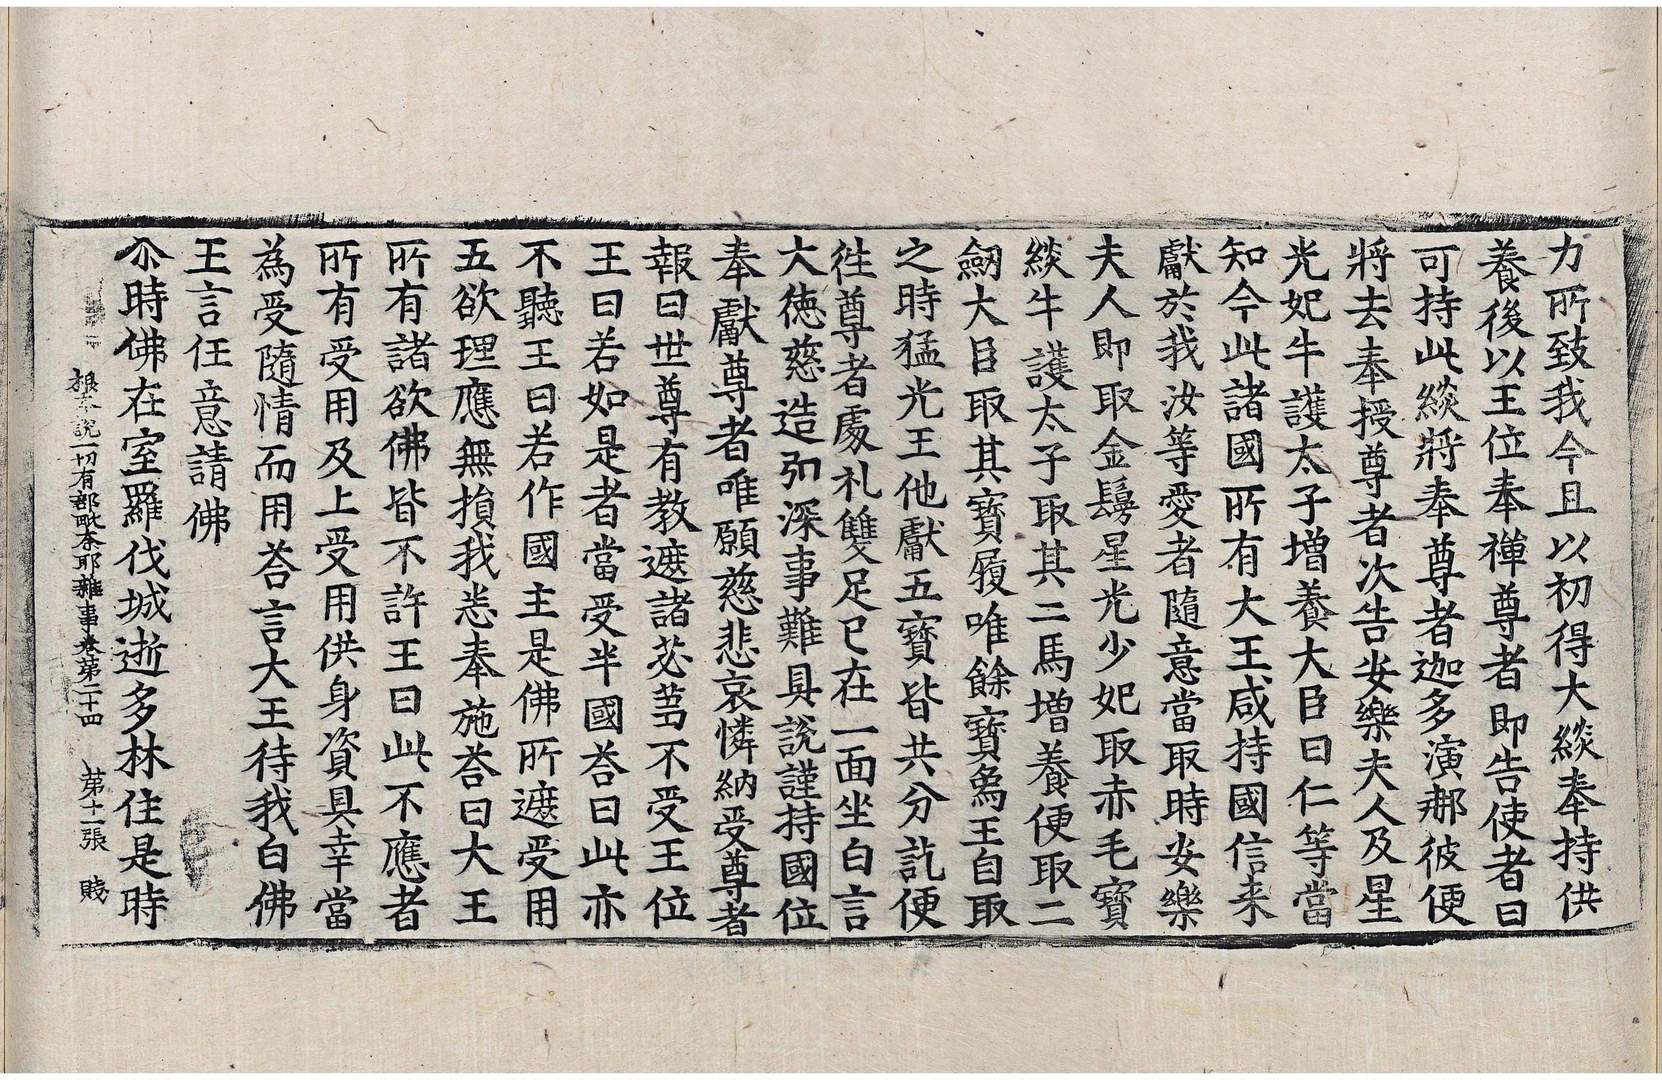 力所致我今且以初得大緂奉持供
養後以王位奉禅尊者即告使者曰
可持此緂將奉尊者迦多演那彼便
將去奉授尊者次告安樂夫人及星
光妃牛護太子增養大臣曰仁等當
知今此諸國所有大王咸持國信来
獻於我汝等愛者隨意當取時安樂
夫人即取金鬘星光少妃取赤毛寶
緂牛護太子取其二馬增養便取二
劒大臣取其寶履唯餘寶象王自取
之時猛光王他獻五寶皆共分訖便
往尊者處礼雙足已在一面坐白言
大德慈造弘深事難具說謹持國位
奉獻尊者唯願慈悲哀憐納受尊者
報曰世尊有教遮諸苾芻不受王位
王曰若如是者當受半國荅曰此亦
不聽王曰若作國主是佛所遮受用
五欲理應無損我悉奉施荅曰大王
所有諸欲佛皆不許王曰此不應者
所有受用及上受用供身資具幸當
為受隨情而用荅言大王待我白佛
王言任意請佛
尒時佛在室羅伐城逝多林住是時
根本說一切有部毗奈耶雜事卷第二十四 第十一張 賤